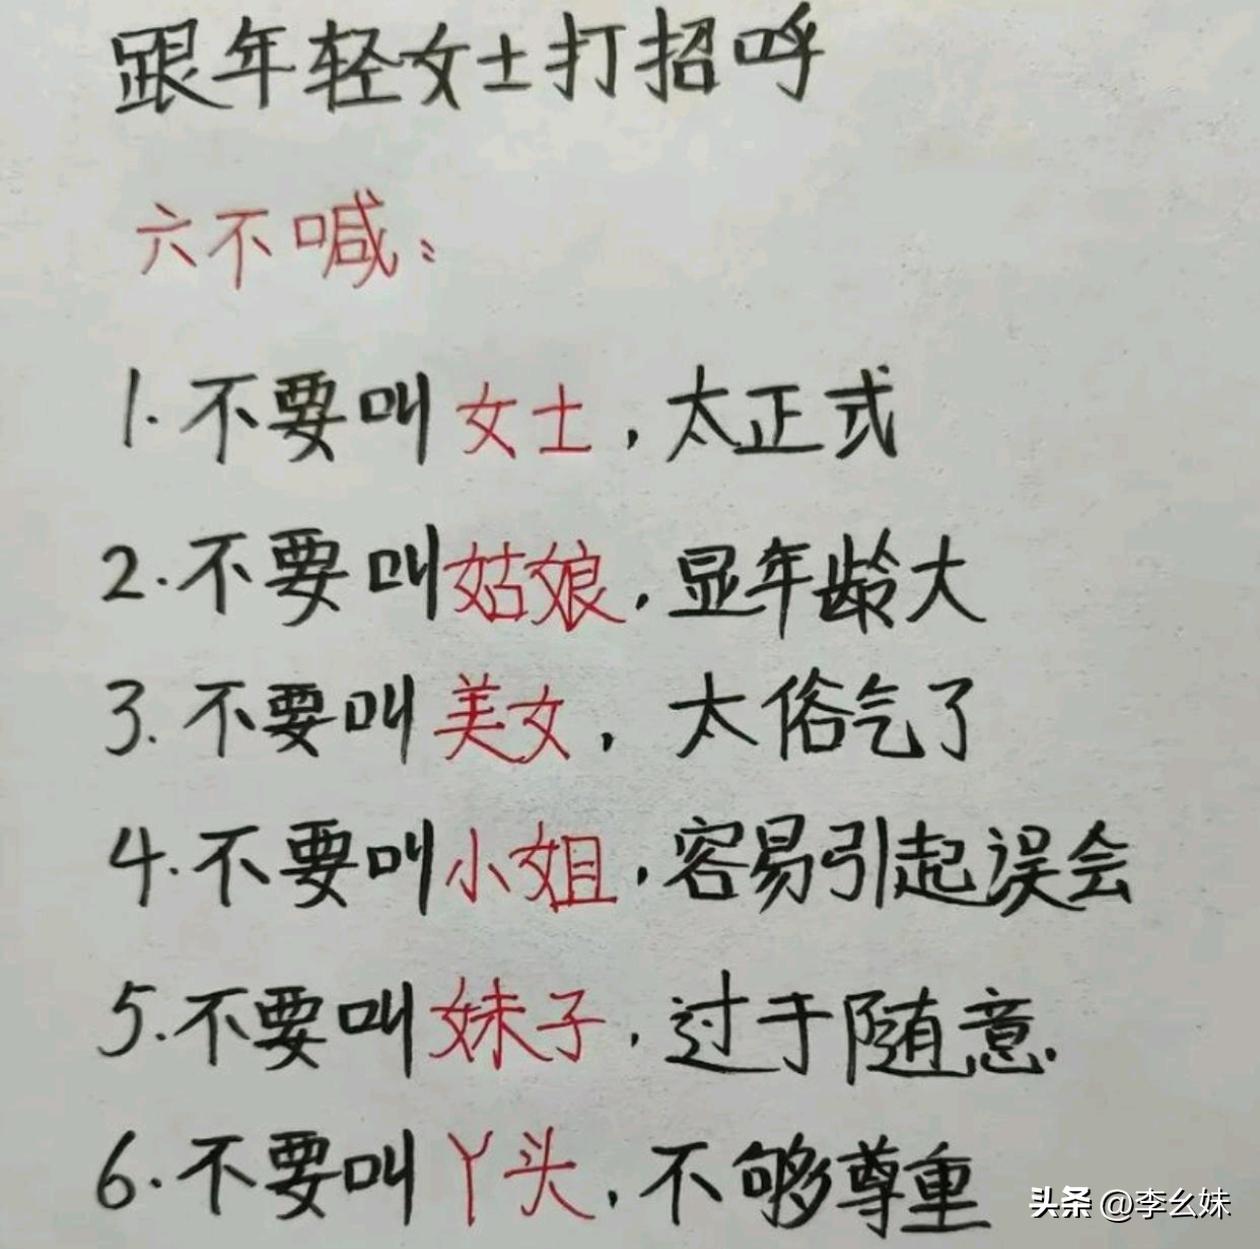 跟年轻女士打招呼
六不喊：
1.不要叫女士，太正式
2.不要叫姑娘，显年龄大
3.不要叫美女，太俗气了
4.不要叫小姐，容易引起误会
5.不要叫妹子，过于随意.
6.不要叫丫头，不够尊重
头条 @李幺妹